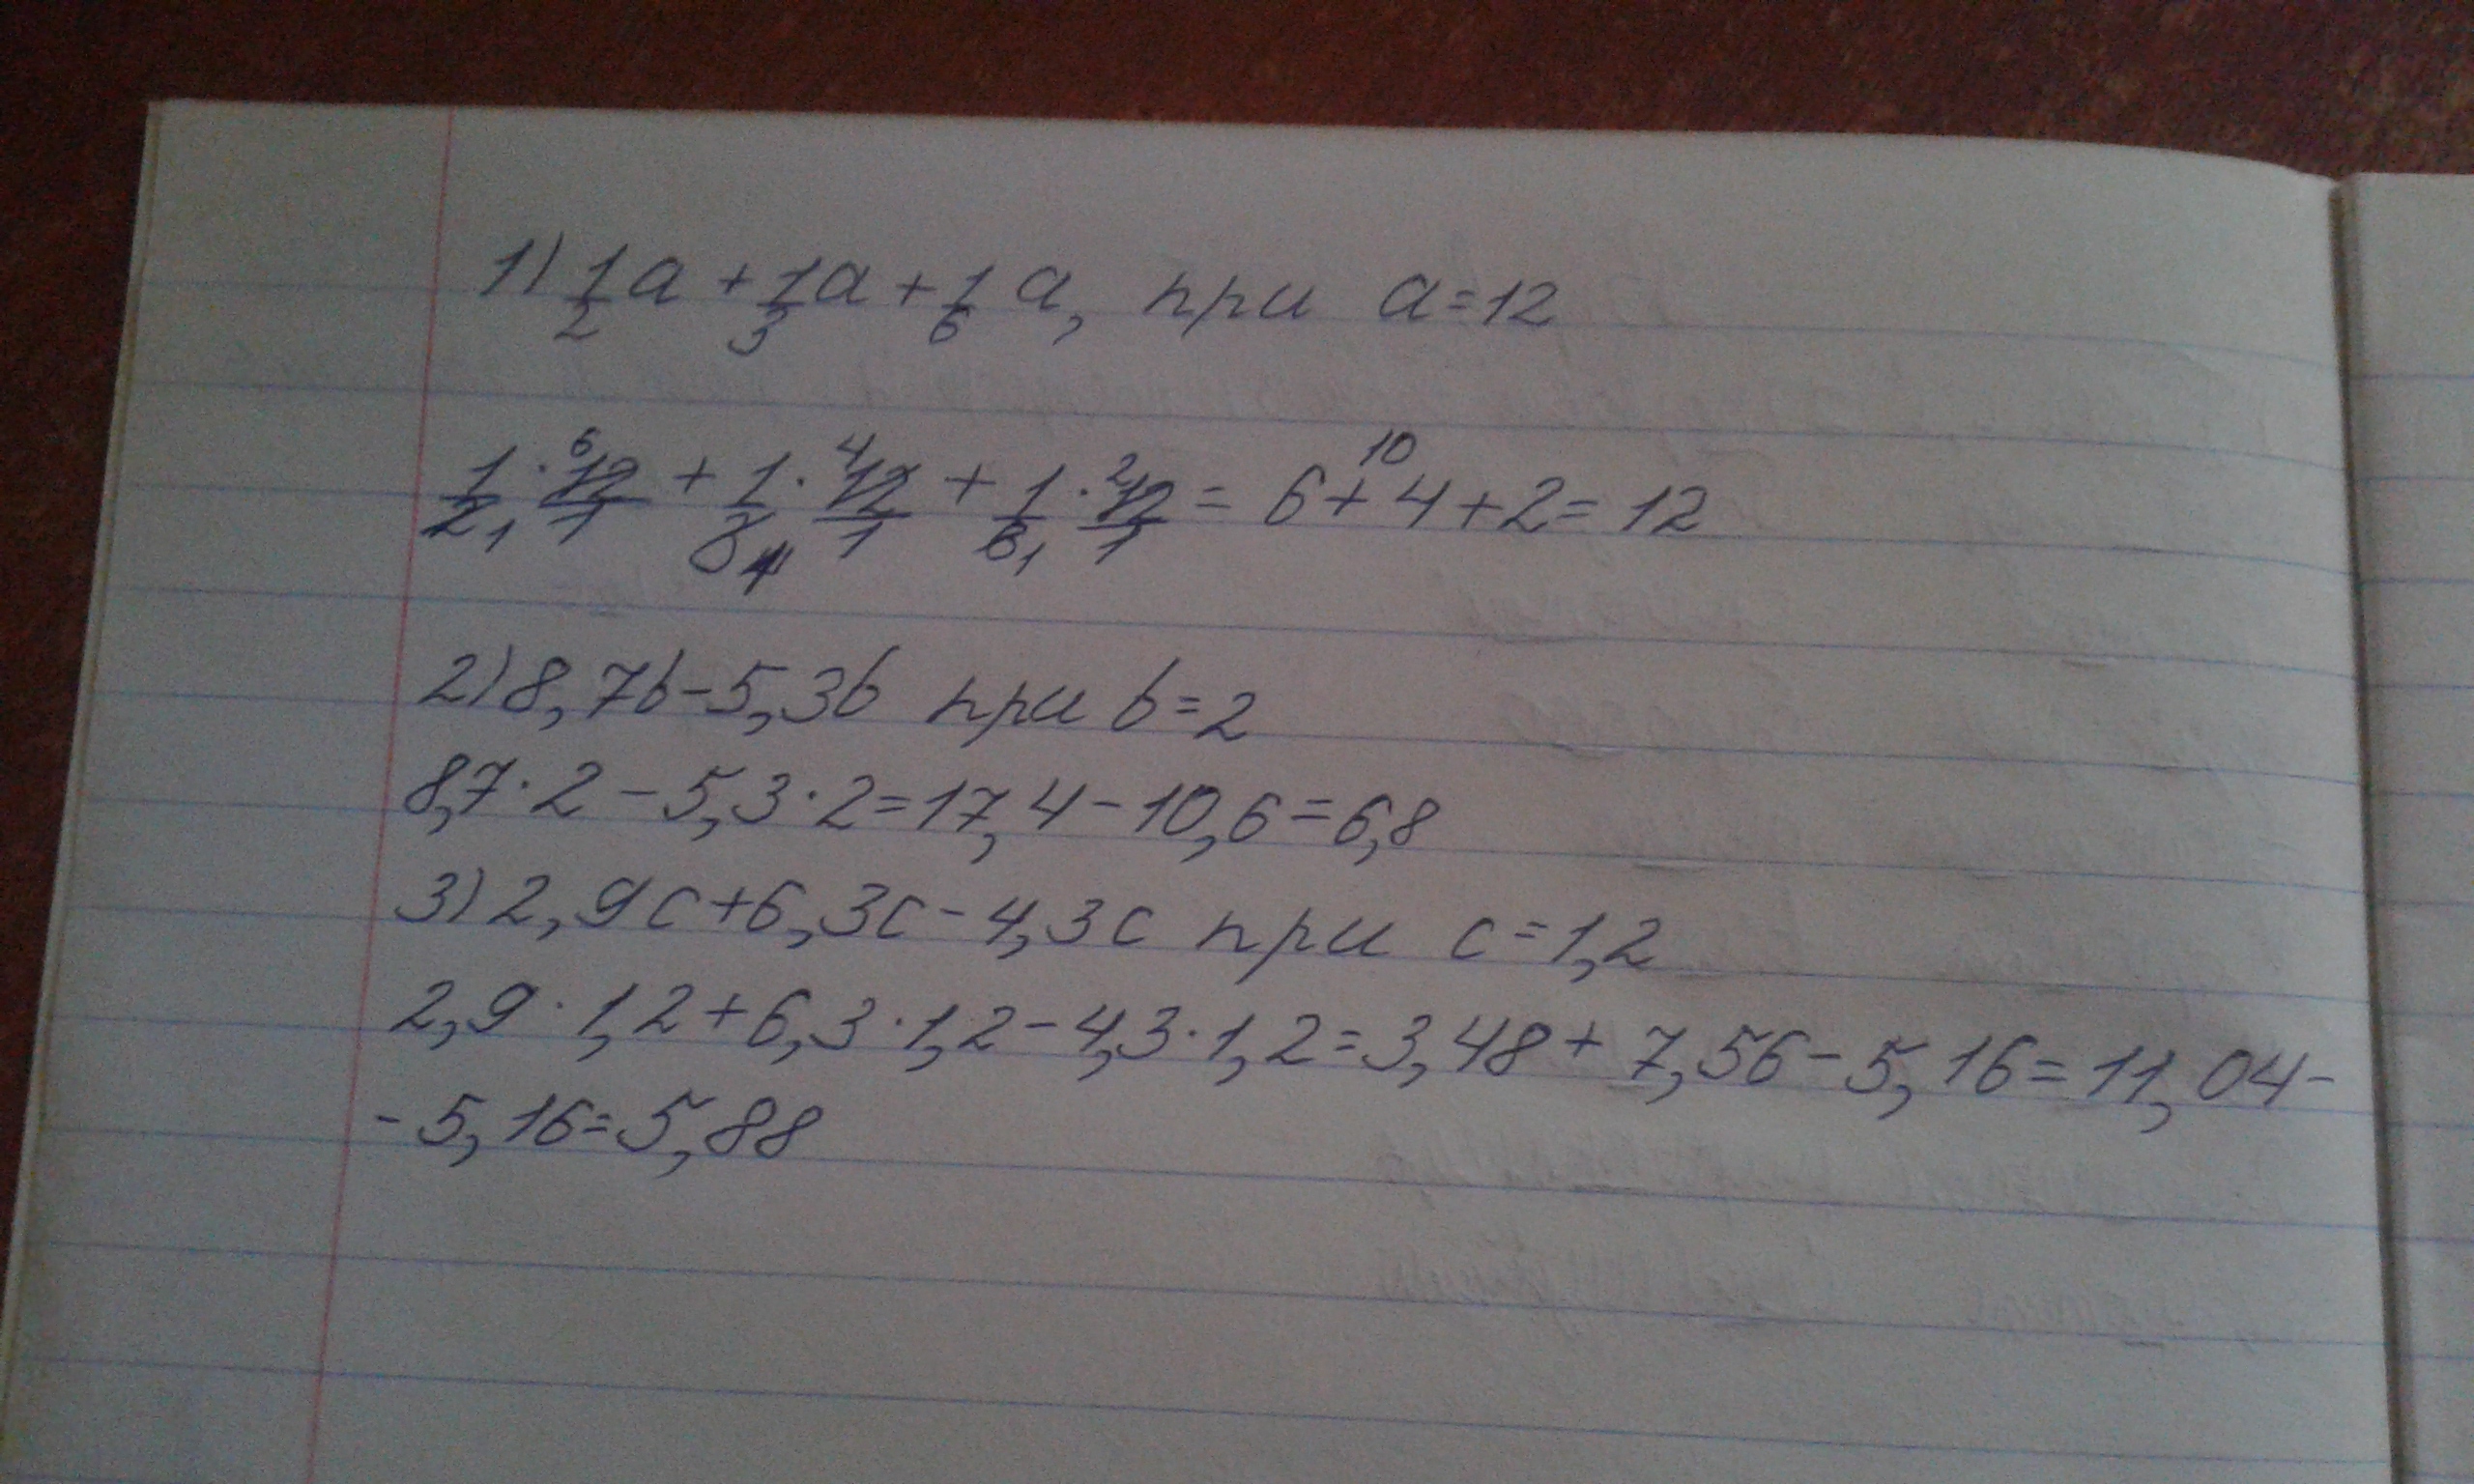 1) 1/2 a + 1/3 a + 1/6 a, при a=12
1/2 1 · 6 12/1 + 1/3 · 4 12/1 + 1/6 1 · 2 12/1 = 6 + 4 + 2 = 12
10
2) 8,7b-5,3b при b=2
8,7·2-5,3·2=17,4-10,6=6,8
3) 2,9c+6,3c-4,3c при c=1,2
2,9·1,2+6,3·1,2-4,3·1,2=3,48+7,56-5,16=11,04-
-5,16=5,88